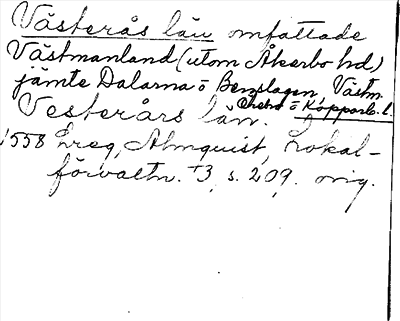 Västerås län omfattade
Västmanland (utom Åkerbo hd)
jämte Dalarna o Bergslagen, Västm.
o Kopparb. l.
Vesterårs län.
1558 Lreg, Almquist, Lokal-
förvaltn. 73, s. 209. orig.